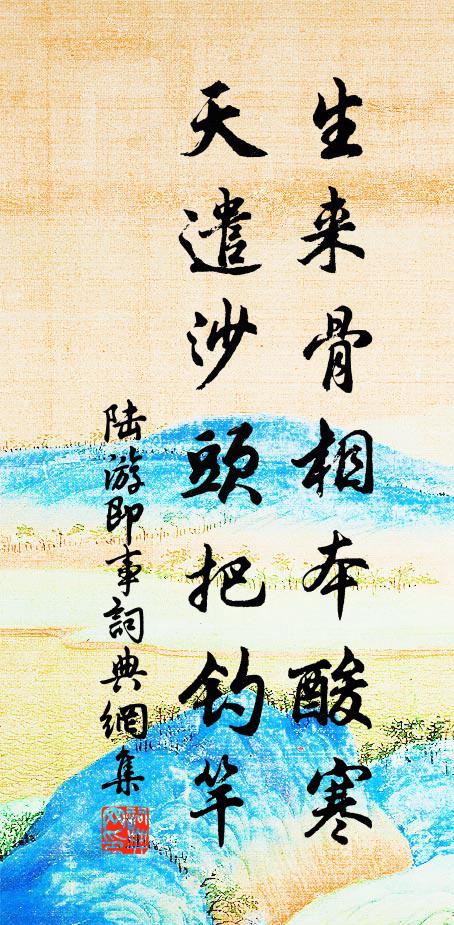 生来骨相本酸寒
天遣沙頭把钓竿
陆游即事詞典網集